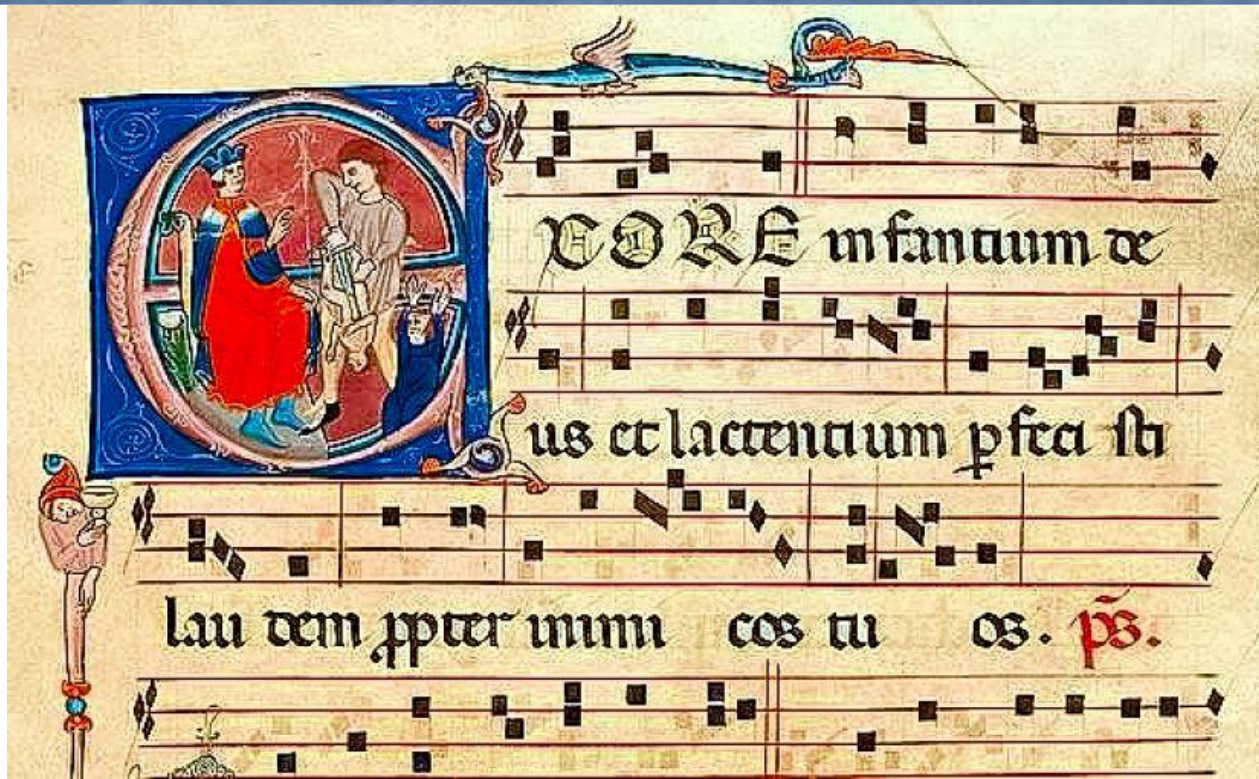 EX ORE infantium de
us et lactentium p̱ feci sti
lau dem ꝓpter inimi cos tu os. p̄s.